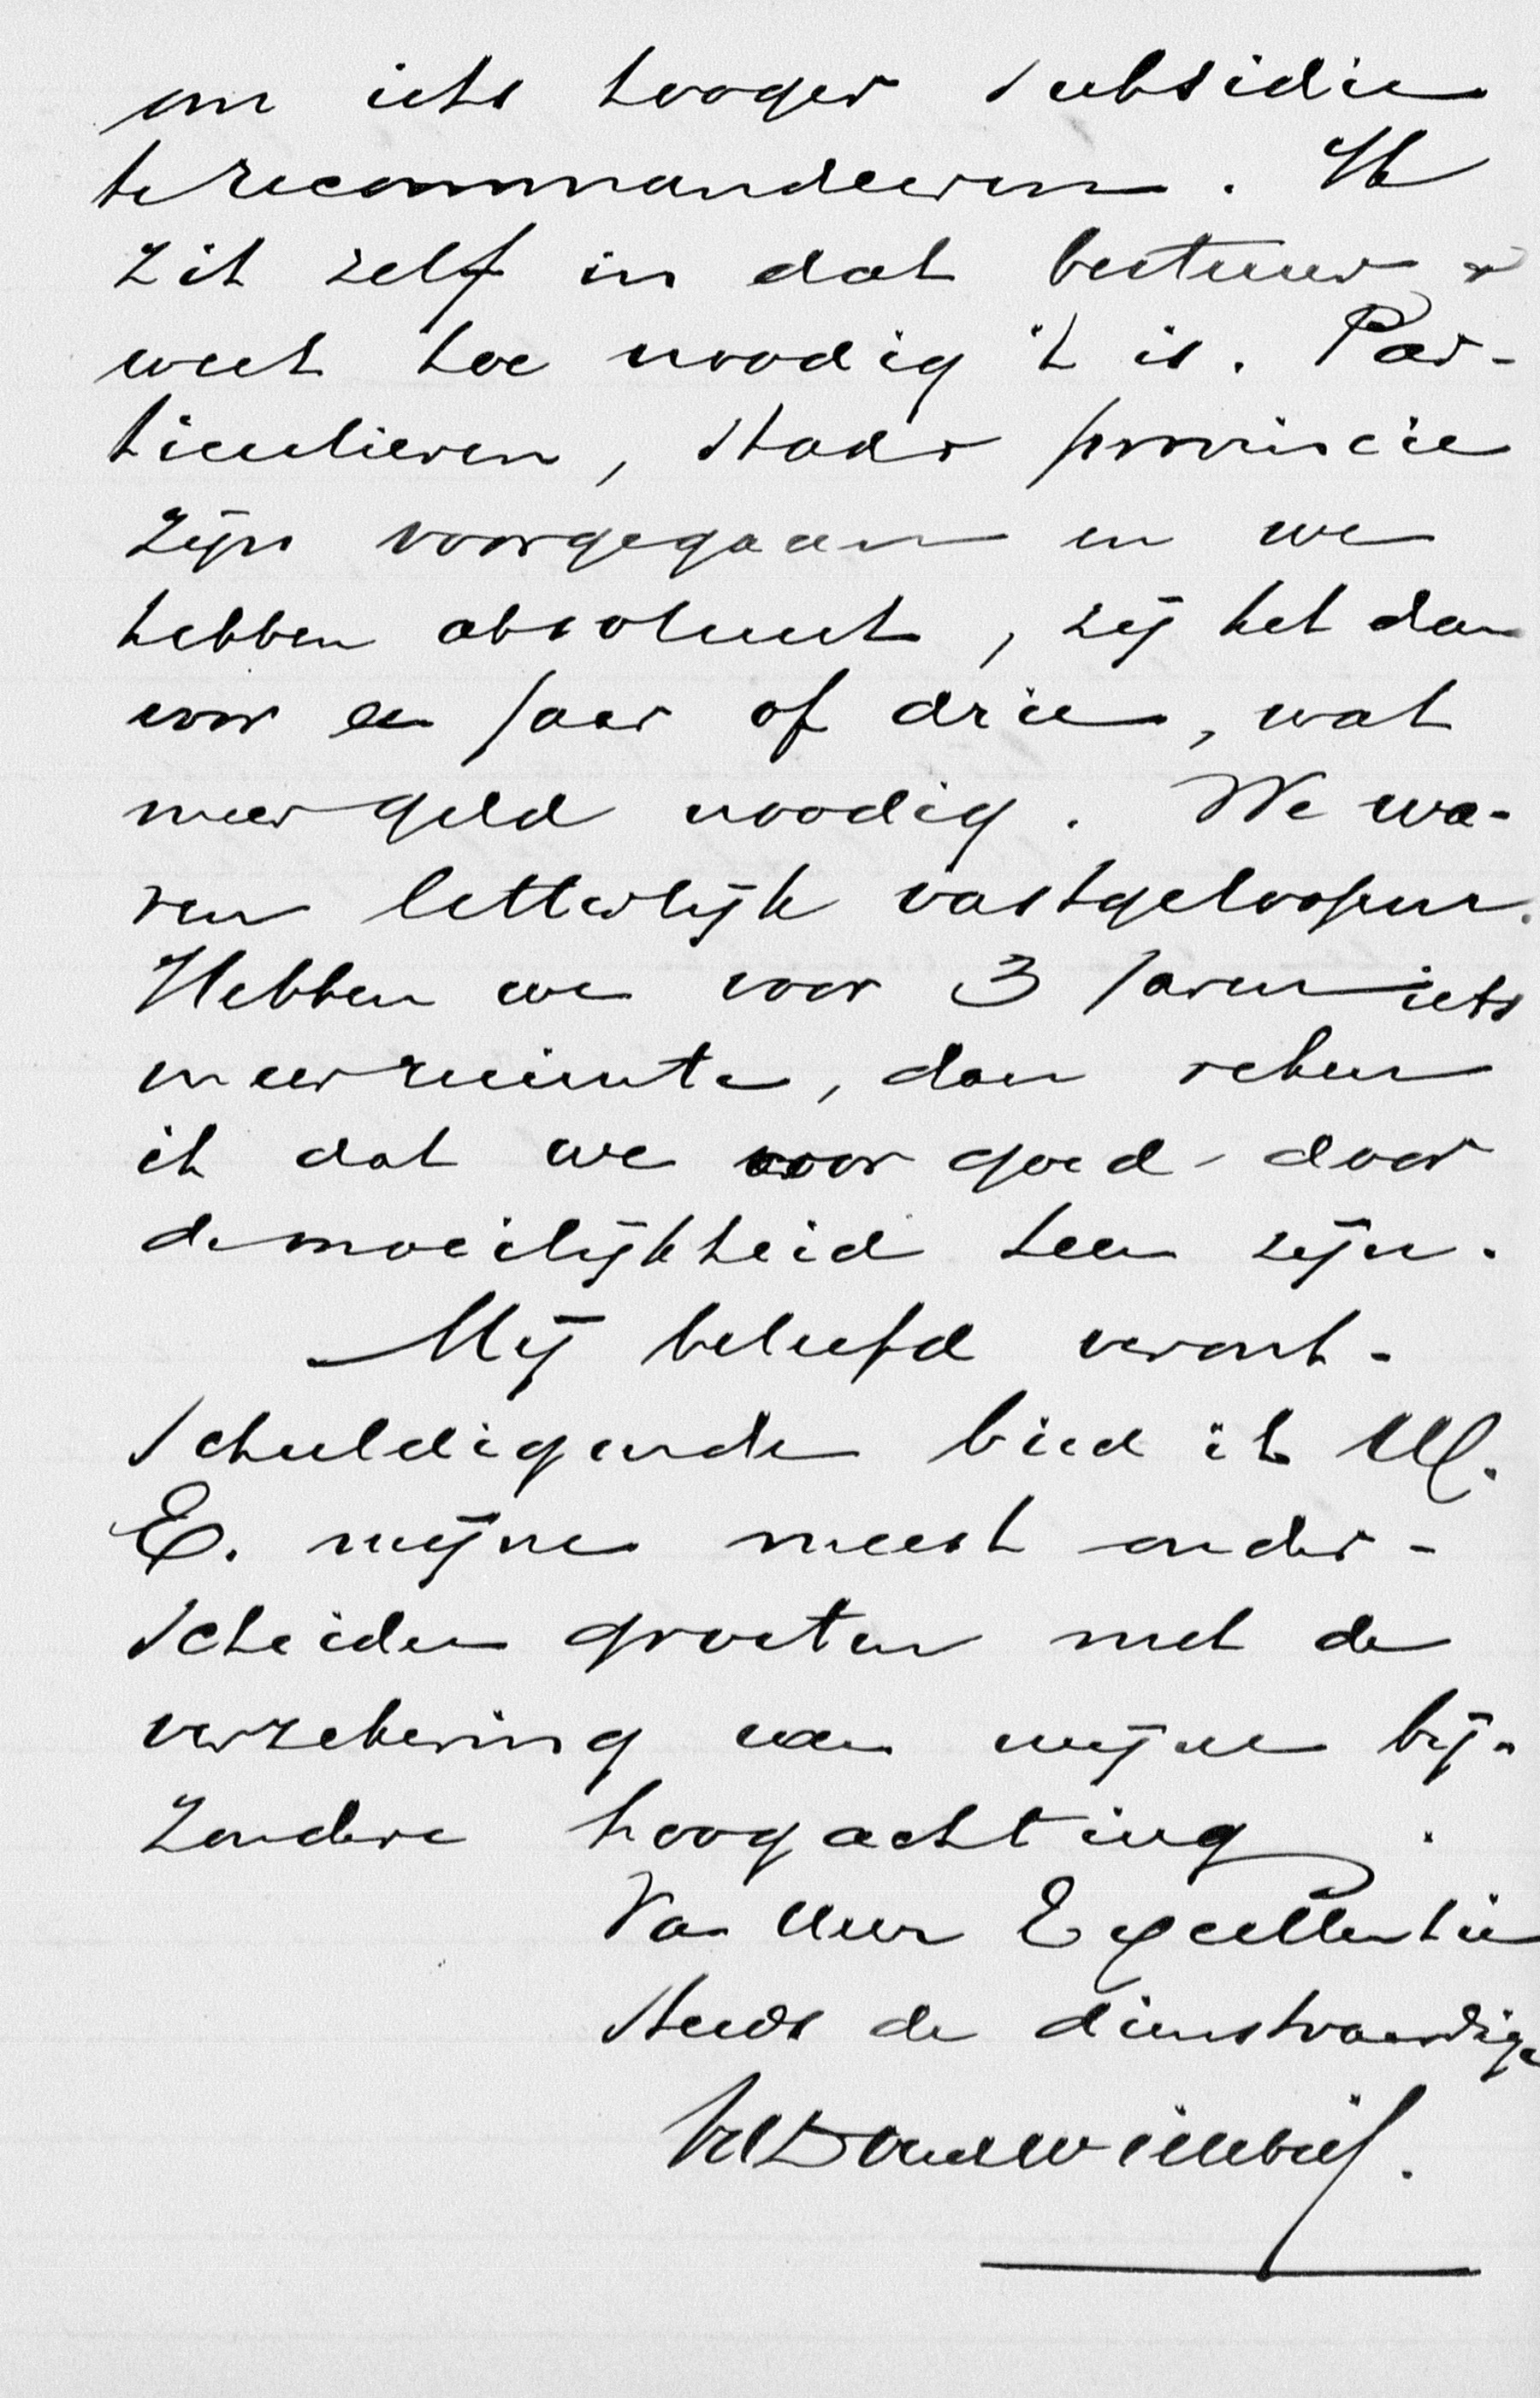 om iets hooger subsidie
te recommandeeren. Ik
zit zelf in dat bestuur &
weet hoe noodig 't is. Par-
ticulieren, stad & provincie
zijn voorgegaan en we
hebben absoluut, zij het dan
voor een jaar of drie, wat
meer geld noodig. We wa-
ren letterlijk vastgeloopen.
Hebben we voor 3 jaren iets
meer ruimte, dan reken
ik dat we voor goed door
de moeilijkheid heen zijn.
Mij beleefd veront-
schuldigende bied ik U.
E. mijne meest onder-
scheiden groeten met de
verzekering van mijne bij-
zondere hoogachting.
Van Uwe Excellentie
steeds de dienstvaardige